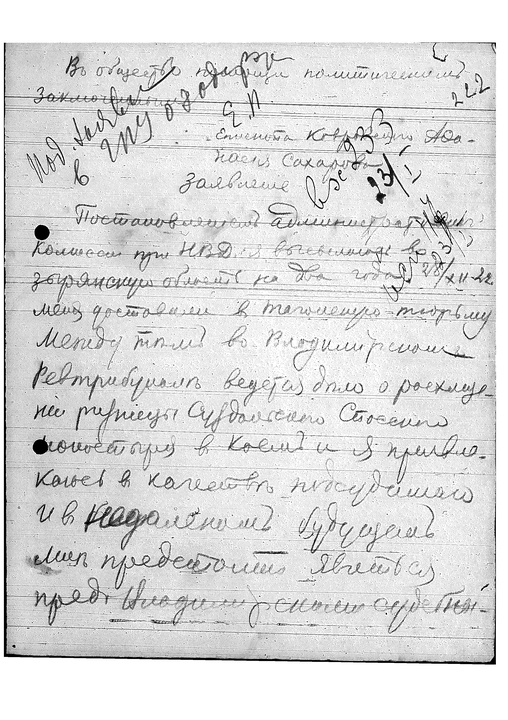 Въ общество помощи политическимъ
заключеннымъ
222
Под. заявл.
в ГПУ о задерж
Е.П
Епископа Ковровского Афа-
насия Сахарова
вх 933
23/I
Заявление
Постановлениемъ административной
комиссии при НВД. я высылаюсь во
зырянскую область на два года
28/XII-22.
меня доставили в Таганскую тюрьму
Между тѣмъ во Владимирскомъ
Ревтрибуналѣ ведется дѣло о расхище-
нии ризницы Суздальского Спасского
монастыря в коемъ и я привле-
каюсь в качествѣ подсудимаго
и в недалекомъ будущемъ
мнѣ предстоитъ явиться
предъ Владимирскимъ судебны-